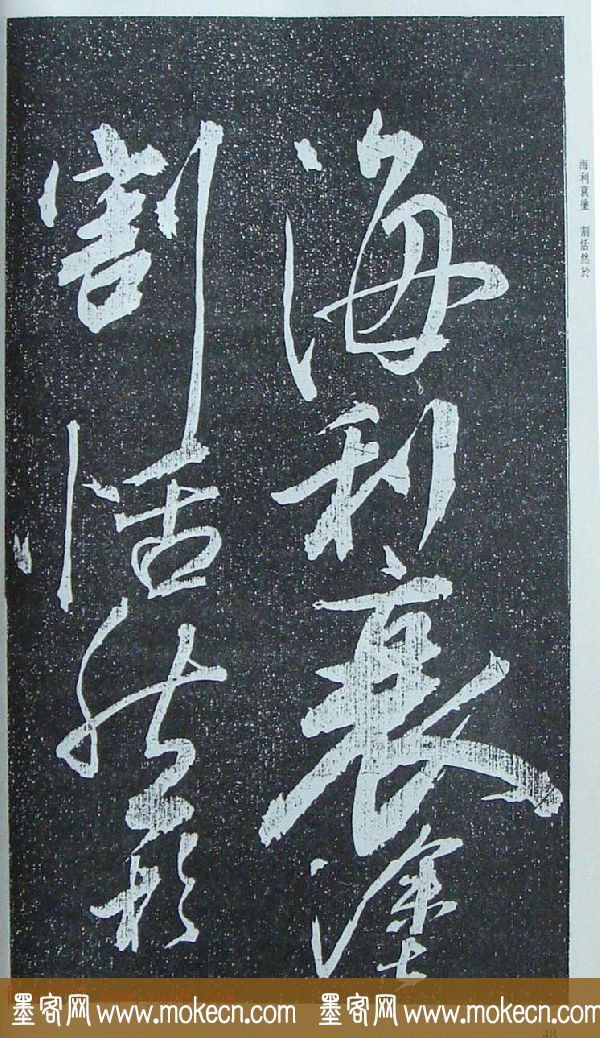 海利衰塗 割恬然於
海利衰塗
割恬然於
墨客网www.mokecn.com 墨客网 www.mokecn.com
48